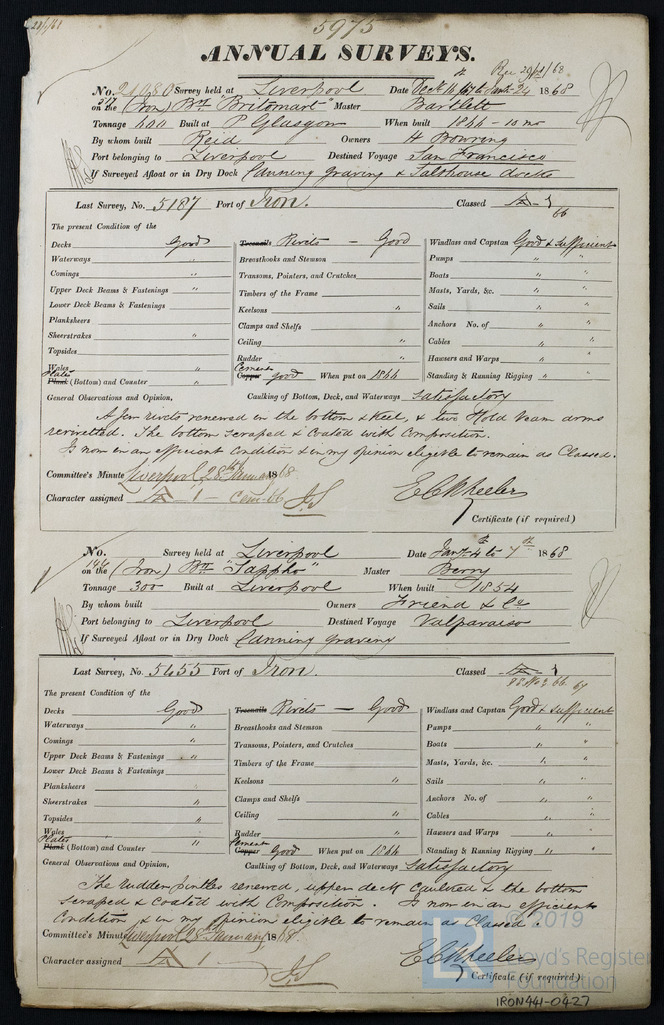 5975
ANNUAL SURVEYS.
Rec 29/1/68
No. Survey held at Liverpool Date Decr 16th 67 to Jany 24 1868
on the (Iron) Bn "Britomart" Master Bartlett
Tonnage 400 Built at P Glasgow When built 1844 - 10 mo
By whom built Reid Owners H Bowring
Port belonging to Liverpool Destined Voyage San Francisco
If Surveyed Afloat or in Dry Dock Canning graving & Salthouse docks
Last Survey, No. 5187 Port of Iron. Classed A-1 66
The present Condition of the
Decks Good
Waterways "
Comings "
Upper Deck Beams & Fastenings "
Lower Deck Beams & Fastenings
Planksheers
Sheerstrakes "
Topsides
Wales
Plates
Plank (Bottom) and Counter "
Treenails Rivets - Good
Breasthooks and Stemson
Transoms, Pointers, and Crutches
Timbers of the Frame
Keelsons "
Clamps and Shelfs
Ceiling "
Rudder "
Cement
Copper good When put on 1844
Windlass and Capstan Good & sufficient
Pumps " "
Boats " "
Masts, Yards, &c. " "
Sails " "
Anchors No. of " "
Cables " "
Hawsers and Warps " "
Standing & Running Rigging " "
General Observations and Opinion, Caulking of Bottom, Deck, and Waterways Satisfactory
A few rivets renewed in the bottom & keel, & two Hold beam arms
rerivetted. The bottom scraped & Coated with Composition.
Is now in an efficient condition & in my opinion eligible to remain as Classed.
Committee's Minute Liverpool 28th January 1868
Character assigned A-1- Cem 66 ECWheeler
Certificate (if required)
No. Survey held at Liverpool Date Jany 4th to 7th 1868
on the (Iron) Bn "Sappho" Master Berry
Tonnage 300 Built at Liverpool When built 1854
By whom built Owners Friend & Co
Port belonging to Liverpool Destined Voyage Valparaiso
If Surveyed Afloat or in Dry Dock Canning graving
Last Survey, No. 5455 Port of Iron. Classed A-1
66 67
The present Condition of the
Decks Good
Waterways "
Comings "
Upper Deck Beams & Fastenings "
Lower Deck Beams & Fastenings
Planksheers
Sheerstrakes "
Topsides "
Wales
Plates
Plank (Bottom) and Counter "
Treenails Rivets - Good
Breasthooks and Stemson
Transoms, Pointers, and Crutches
Timbers of the Frame
Keelsons "
Clamps and Shelfs
Ceiling "
Rudder
Cement
Copper Good When put on 1844
Windlass and Capstan Good & sufficient
Pumps " "
Boats " "
Masts, Yards, &c. " "
Sails " "
Anchors No. of " "
Cables " "
Hawsers and Warps " "
Standing & Running Rigging " "
General Observations and Opinion, Caulking of Bottom, Deck, and Waterways Satisfactory
The rudder pintles renewed, upper deck caulked & the bottom
scraped & Coated with Composition. Is now in an efficient
Condition & in my opinion eligible to remain as Classed.
Committee's Minute Liverpool 28th January 1868
Character assigned A 1 ECWheeler
Certificate (if required)
© 2019
Lloyd's Register
Foundation
IRON441-0427